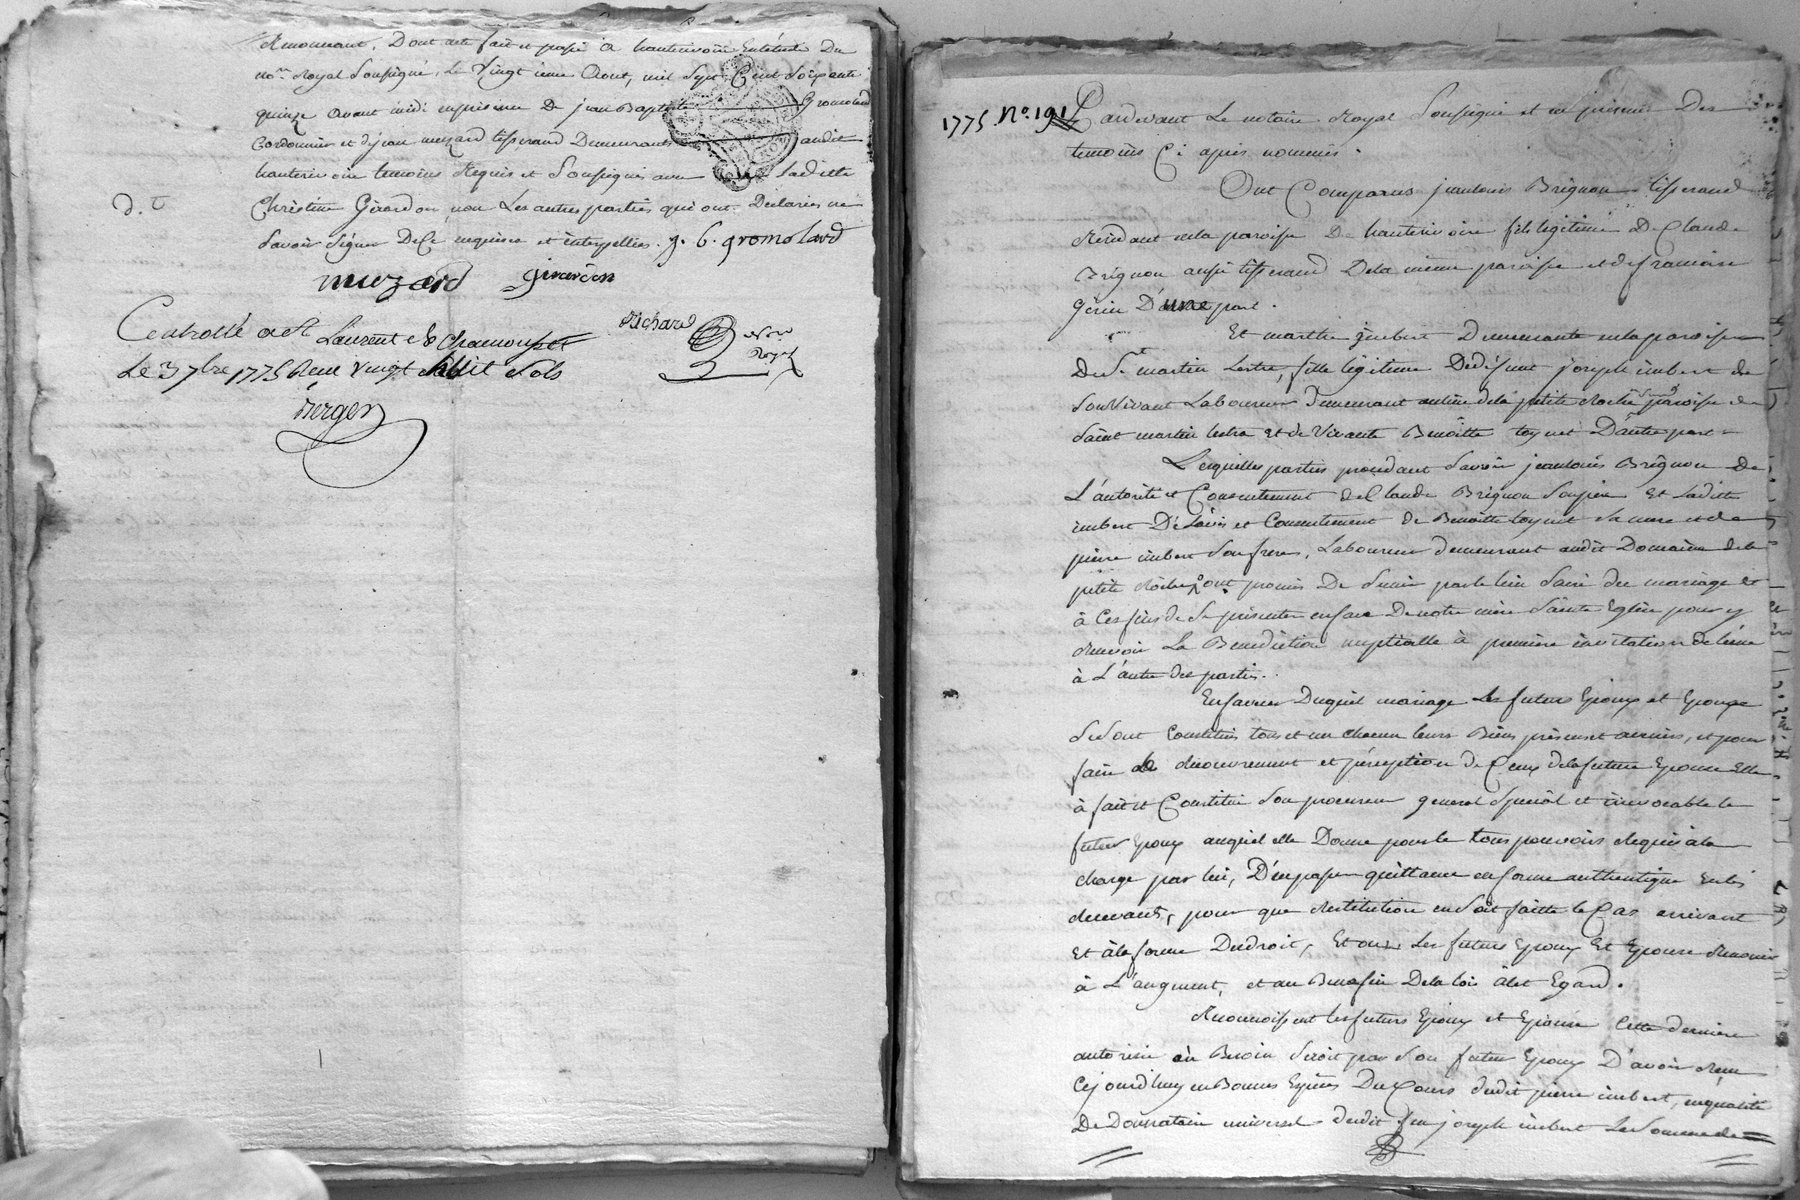 Renonceant. Dont acte fait et passé à hauterivoire En l'étude Du
no.re Royal Soussigné, Le Vingt ieme Aout, mil Sept Cent Soixante
quinze avant midi en présence De jean Baptiste Gromolard
Cordonnier et de jean muzard tisserand Demeurants audit
hauterivoire temoins Requis et Soussignés avec Laditte
Christine Girardon, non Les autres parties qui ont Declarées ne
Savoir Signer De Ce enquises et interpellées. g. b. gromolard
muzard girardon
Controllé a St Laurent de Chamousset
Le 3 7bre 1775 Reçu vingt huit sols
Richard No.re Royal
Berger
D. t
1775 No. 191
Pardevant Le notaire Royal Soussigné et en présence Des
temoins Ci après nommés.
Ont Comparus jean louis Brignon tisserand
Résidant en la paroisse De hauterivoire fils légitime De Claude
Brignon aussi tisserand De la même paroisse et de françoise
gérin D'une part.
Et marthe imbert Demeurante en la paroisse
De St martin Lestra, fille légitime De défunt joseph imbert de
Son Vivant Laboureur Demeurant au lieu de la petite Roche paroisse de
Saint martin lestra Et de Vivante Benoitte toynet D'autre part
Lesquelles parties procedant Savoir jean louis Brignon De
L'autorité et Consentement de Claude Brignon Son père Et Laditte
imbert De L'avis et Consentement de Benoitte toynet Sa mere et de
pierre imbert Son frere, Laboureur demeurant audit Domaine de la
petite Roche, ont promis De S'unir par le lien Sacré du mariage et
à Ces fins de Se présenter en face De notre mère Sainte Eglise pour y
Recevoir La Benediction nuptialle à première invitation de l'une
à L'autre des parties.
En faveur Duquel mariage Les futurs Epoux et Epouse
Se Sont Constitués tous et un chacun leurs Biens présents et avenirs, et pour
faire le Recouvrement et perception de Ceux de la future Epouse Elle
à fait et Constitué Son procureur general Special et irrevocable le
futur Epoux auquel elle Donne pour le tous pouvoirs Requis à la
charge par lui, D'en passer quittance en forme authentique En les
Recevants, pour que Restitution en Soit faitte le Cas arrivant
Et à la forme Du droit, Et ont Les futurs Epoux Et Epouse Renoncé
à L'augment, et au Benefice De la loi à Cet Egard.
Reconnoissent les futurs Epoux et Epouse Cette derniere
autorisée où Besoin Seroit par Son futur Epoux D'avoir Reçu
Cejourd'huy en Bonnes Espèces Du Cours dudit pierre imbert, en qualité
De Donnataire universel dudit feu joseph imbert La Somme de